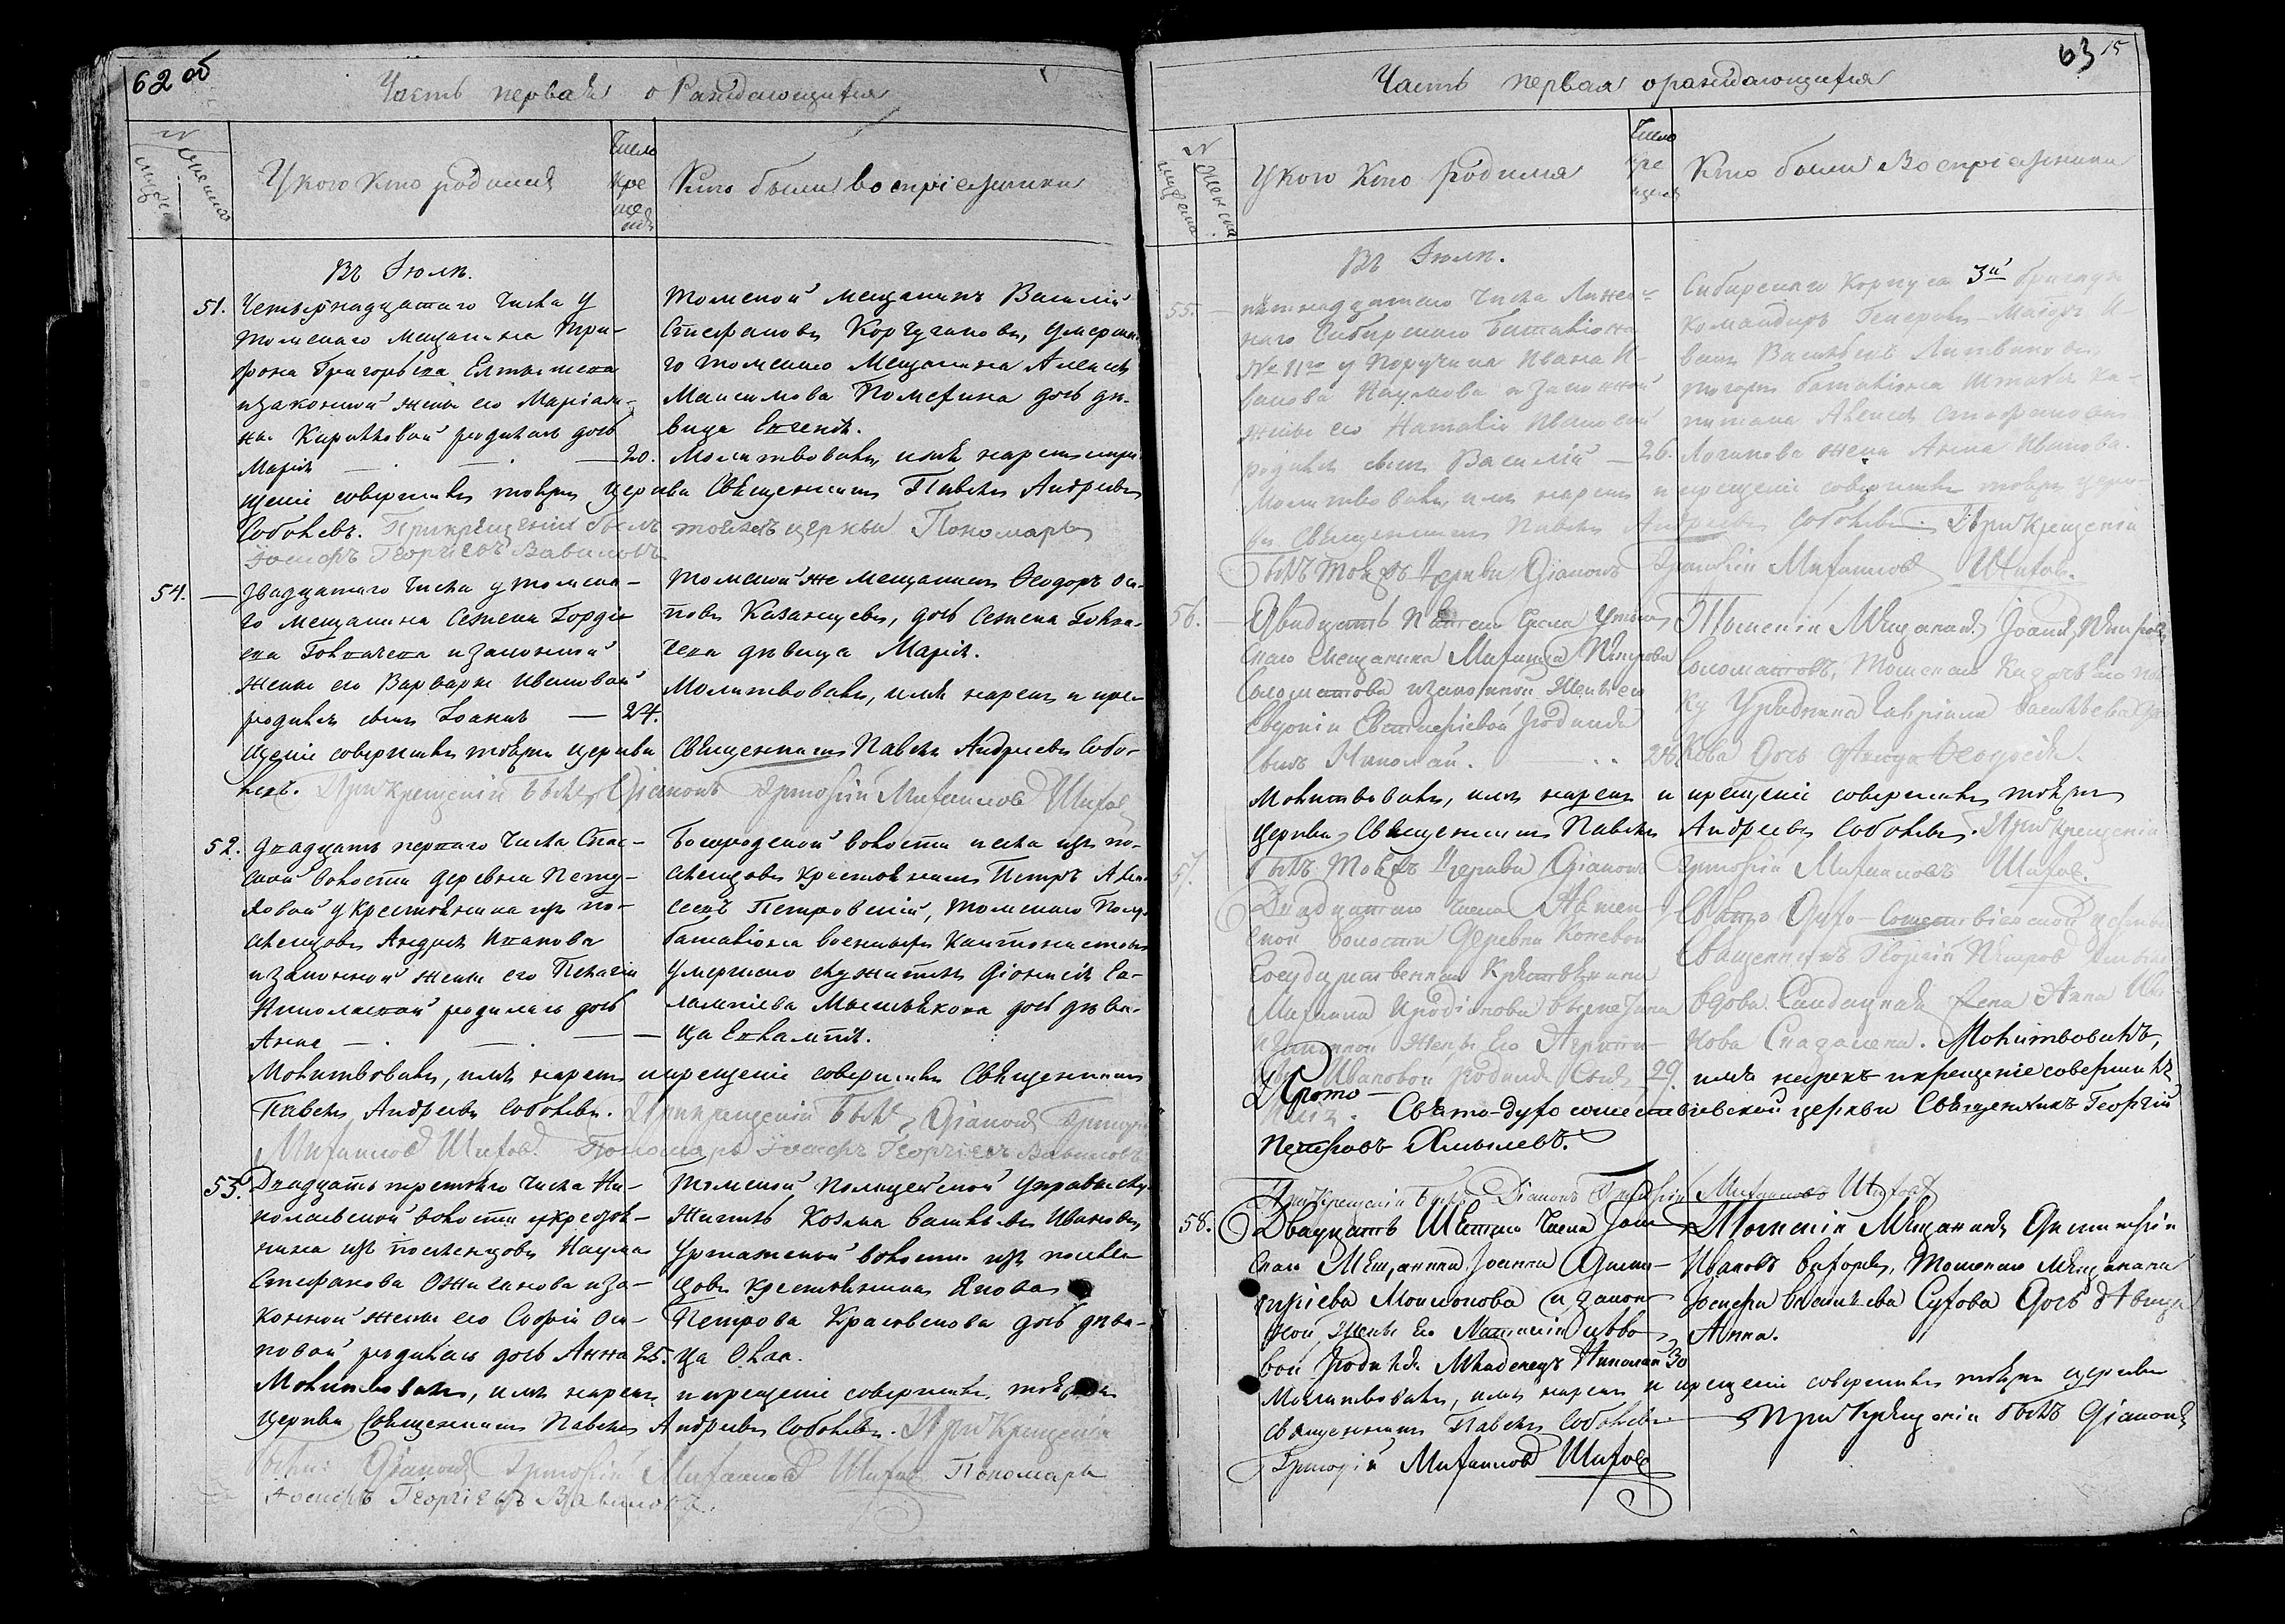 62 об
Часть первая о Раждающихся
№
мужеска
женска
У кого кто родился
Число
кре
ще
нія
Кто были воспріемники
Въ Іюлѣ.
51. Четырнадцатаго числа у
томскаго мещанина Три-
фона Григорьева
и законной жены его Маріан-
ны Кириловой родилась дочь
Марія — 20.
Томской мещанинъ Василій
Стефановъ Корчугановъ, умерша-
го томскаго мещанина Алексѣя
Максимова дочь дѣ-
вица Евгенія.
Молитвовалъ, имя нарекъ и кре-
щеніе совершилъ тойже церкви Священникъ Павелъ Андреевъ
Соболевъ. При крещеніи былъ тойже церкви Пономарь
Іосифъ Георгіевъ Вавиловъ
54. — Двадцатаго числа у томска-
го мещанина Семена Гордіе-
ва и законной
жены его Варвары Ивановой
родился сынъ Іоаннъ — 24.
Томской же мещанинъ Ѳеодоръ Оси-
повъ Казанцевъ, дочь Семена
дѣвица Марія.
Молитвовалъ, имя нарекъ и кре-
щеніе совершилъ тойже церкви Священникъ Павелъ Андреевъ Собо-
левъ. При крещеніи былъ Діаконъ Григорій Михаиловъ Шиховъ
52. Двадцать перваго числа Спас-
ской волости деревни Пету-
ховой у крестьянина изъ по-
селенцовъ Андрея Иванова
и законной жены его Пелагіи
Николаевой родилась дочь
Анна — —
Богородской волости села изъ по-
селенцовъ крестьянинъ Петръ Алек-
сеевъ Петровскій, Томскаго Полу-
баталіона военныхъ кантонистовъ
умершаго служителя Діонисія Ев-
лампіева дочь дѣви-
ца Евлампія.
Молитвовалъ, имя нарекъ и крещеніе совершилъ Священникъ
Павелъ Андреевъ Соболевъ. При крещеніи былъ Діаконъ Григорій
Михаиловъ Шиховъ. Пономарь Іосифъ Георгіевъ Вавиловъ
53. Двадцать третьяго числа Ни-
колаевской волости у крестья-
нина изъ поселенцовъ Наума
Стефанова Ожиганова и за-
конной жены его Софіи Оси-
повой родилась дочь Анна 25.
Томской Полицейской Управы слу-
житель Козма Васильевъ Ивановъ
Уртамской волости изъ поселен-
цовъ крестьянина Якова
Петрова дочь дѣви-
ца Ольга.
Молитвовалъ, имя нарекъ и крещеніе совершилъ тойже
церкви Священникъ Павелъ Андреевъ Соболевъ. При крещеніи
были: Діаконъ Григорій Михаиловъ Шиховъ Пономарь
Іосифъ Георгіевъ Вавиловъ.
63 15
Часть первая о раждающихся
№
мужеска
женска
У кого кто родился
Число
кре
щенія
Кто были Воспріемники
Въ Іюлѣ.
55. — пятнадцатаго числа Линей-
наго Сибирскаго Баталіона
№ 11го у Поручика Ивана И-
ванова Наумова и законной
жены его Наталіи Ивановой
родился сынъ Василій — 26.
Сибирскаго Корпуса 3й бригады
Командиръ Генералъ-Маіоръ И-
ванъ Васильевъ Литвиновъ,
тогоже баталіона Штабсъ Ка-
питана Алексея Стефанова
Логинова жена Анна Иванова.
Молитвовалъ, имя нарекъ и крещеніе совершилъ тойже церк-
ви Священникъ Павелъ Андреевъ Соболевъ. При крещеніи
былъ тойже Церкви Діаконъ Григорій Михаиловъ Шиховъ.
56. — Двадцать пятаго числа у том-
скаго мещанина Михаила Петрова
Соломатова и законной жены его
Евдокіи родился
сынъ Николай. 28.
Томскій Мещанинъ Іоаннъ
Соломатовъ, Томскаго
Урядника Гавріила Васильева
дочь дѣвица Ѳеодосія.
Молитвовалъ, имя нарекъ и крещеніе совершилъ тойже
церкви Священникъ Павелъ Андреевъ Соболевъ. При крещеніи
былъ тойже Церкви Діаконъ Григорій Михаиловъ Шиховъ.
57. Двадцатаго числа
волости деревни
Государственнаго Крестьянина
Михаила Иродіонова
и законной жены его
Ивановой родился сынъ 29.
Свято-Духо-Сошественской церкви
Священникъ Георгій Петровъ
вдова Анна Ива-
нова. Молитвовалъ,
имя нарекъ и крещеніе совершилъ
Свято-Духо сошественской церкви Священникъ Георгій
Петровъ Хмылевъ.
При крещеніи былъ Діаконъ Григорій Михаиловъ Шиховъ
58. Двадцать Шестаго числа Том-
скаго Мещанина Іоанна Дими-
тріева и закон-
ной жены его Наталіи Льво-
вой родился Младенецъ Николай 30
Томскій Мещанинъ Димитрій
Ивановъ, Томскаго Мещанина
Іосифа Васильева Сухова дочь дѣвица
Анна.
Молитвовалъ, имя нарекъ и крещеніе совершилъ тойже церкви
Священникъ Павелъ Соболевъ — При крещеніи былъ Діаконъ
Григорій Михаиловъ Шиховъ